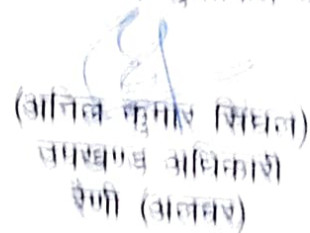 (अनिल कुमार सिंघल)
उपखण्ड अधिकारी
रैणी (अलवर)